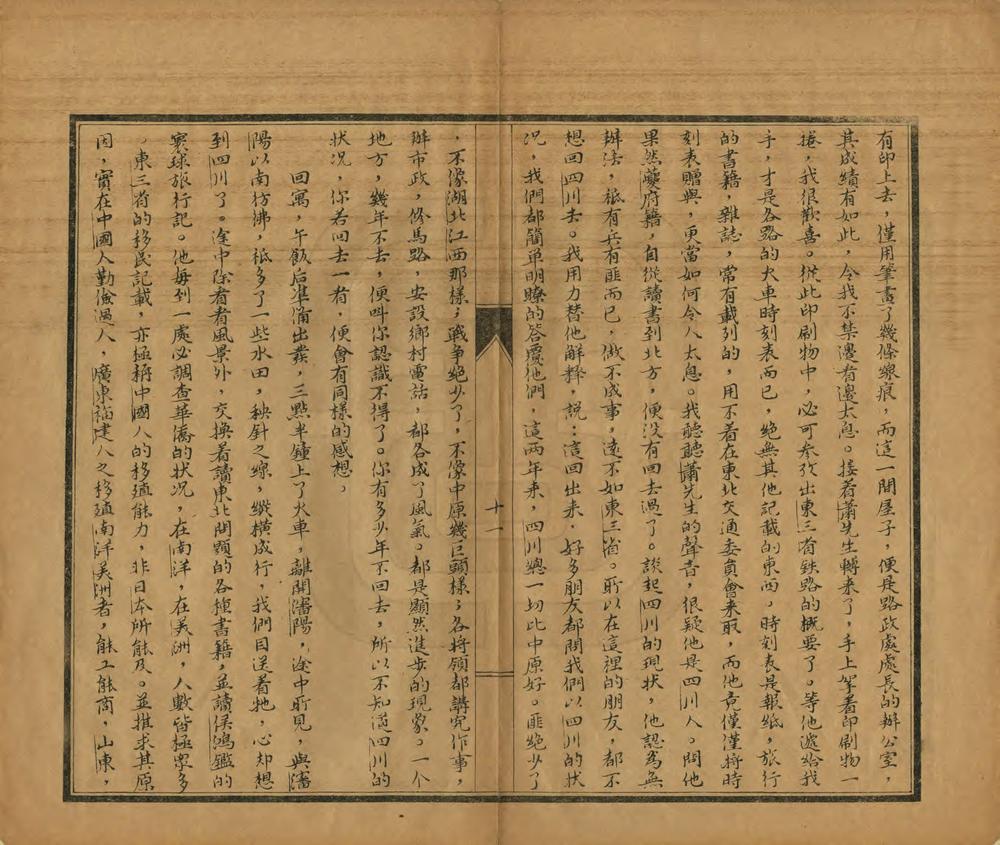 有印上去，僅用筆畫了幾條線痕，而這一間屋子，便是路政處處長的辦公室，
其成績有如此，令我不禁邊看邊太息。接着蕭先生轉來了，手上拏着印刷物一
捲，我很歡喜。從此印刷物中，必可參攷出東三省鉄路的概要了。等他遞給我
手，才是各路的火車時刻表而已，絕無其他記載的東西，時刻表是報紙，旅行
的書籍，雜誌，常有載列的，用不着在東北交通委員會來取，而他竟僅僅將時
刻表贈與，更當如何令人太息。我聽聽蕭先生的聲音，很疑他是四川人。問他
果然夔府籍，自從讀書到北方，便没有回去過了。談起四川的現狀，他認為無
辦法，祇有兵有匪而已，做不成事，遠不如東三省。所以在這裡的朋友，都不
想回四川去。我用力替他解釋，説：這回出来，好多朋友都問我們以四川的狀
况，我們都簡單明瞭的答覆他們，這兩年来，四川總一切比中原好。匪絕少了
十一
，不像湖北江西那樣；戰争絕少了，不像中原幾巨頭樣；各将領都講究作事，
辦市政，修馬路，安設鄉村電話，都各成了風氣。都是顯然進步的現象。一个
地方，幾年不去，便叫你認識不得了。你有多少年不回去，所以不知道四川的
狀况，你若回去一看，便會有同樣的感想。
回寓，午飯后準備出發，三點半鐘上了火車，離開瀋陽，途中所見，與瀋
陽以南彷彿，祇多了一些水田，秧針之綠，縱横成行，我們目送着牠，心却想
到四川了。途中除看看風景外，交换着讀東北問題的各種書籍，並讀侯鴻鑑的
寰球旅行記。他每到一處必調查華僑的状况，在南洋，在美洲，人數皆極衆多
。東三省的移民記載，亦極稱中國人的移殖能力，非日本所能及。並推求其原
因，實在中國人勤儉過人，廣東福建人之移殖南洋美洲者，能工能商，山東，